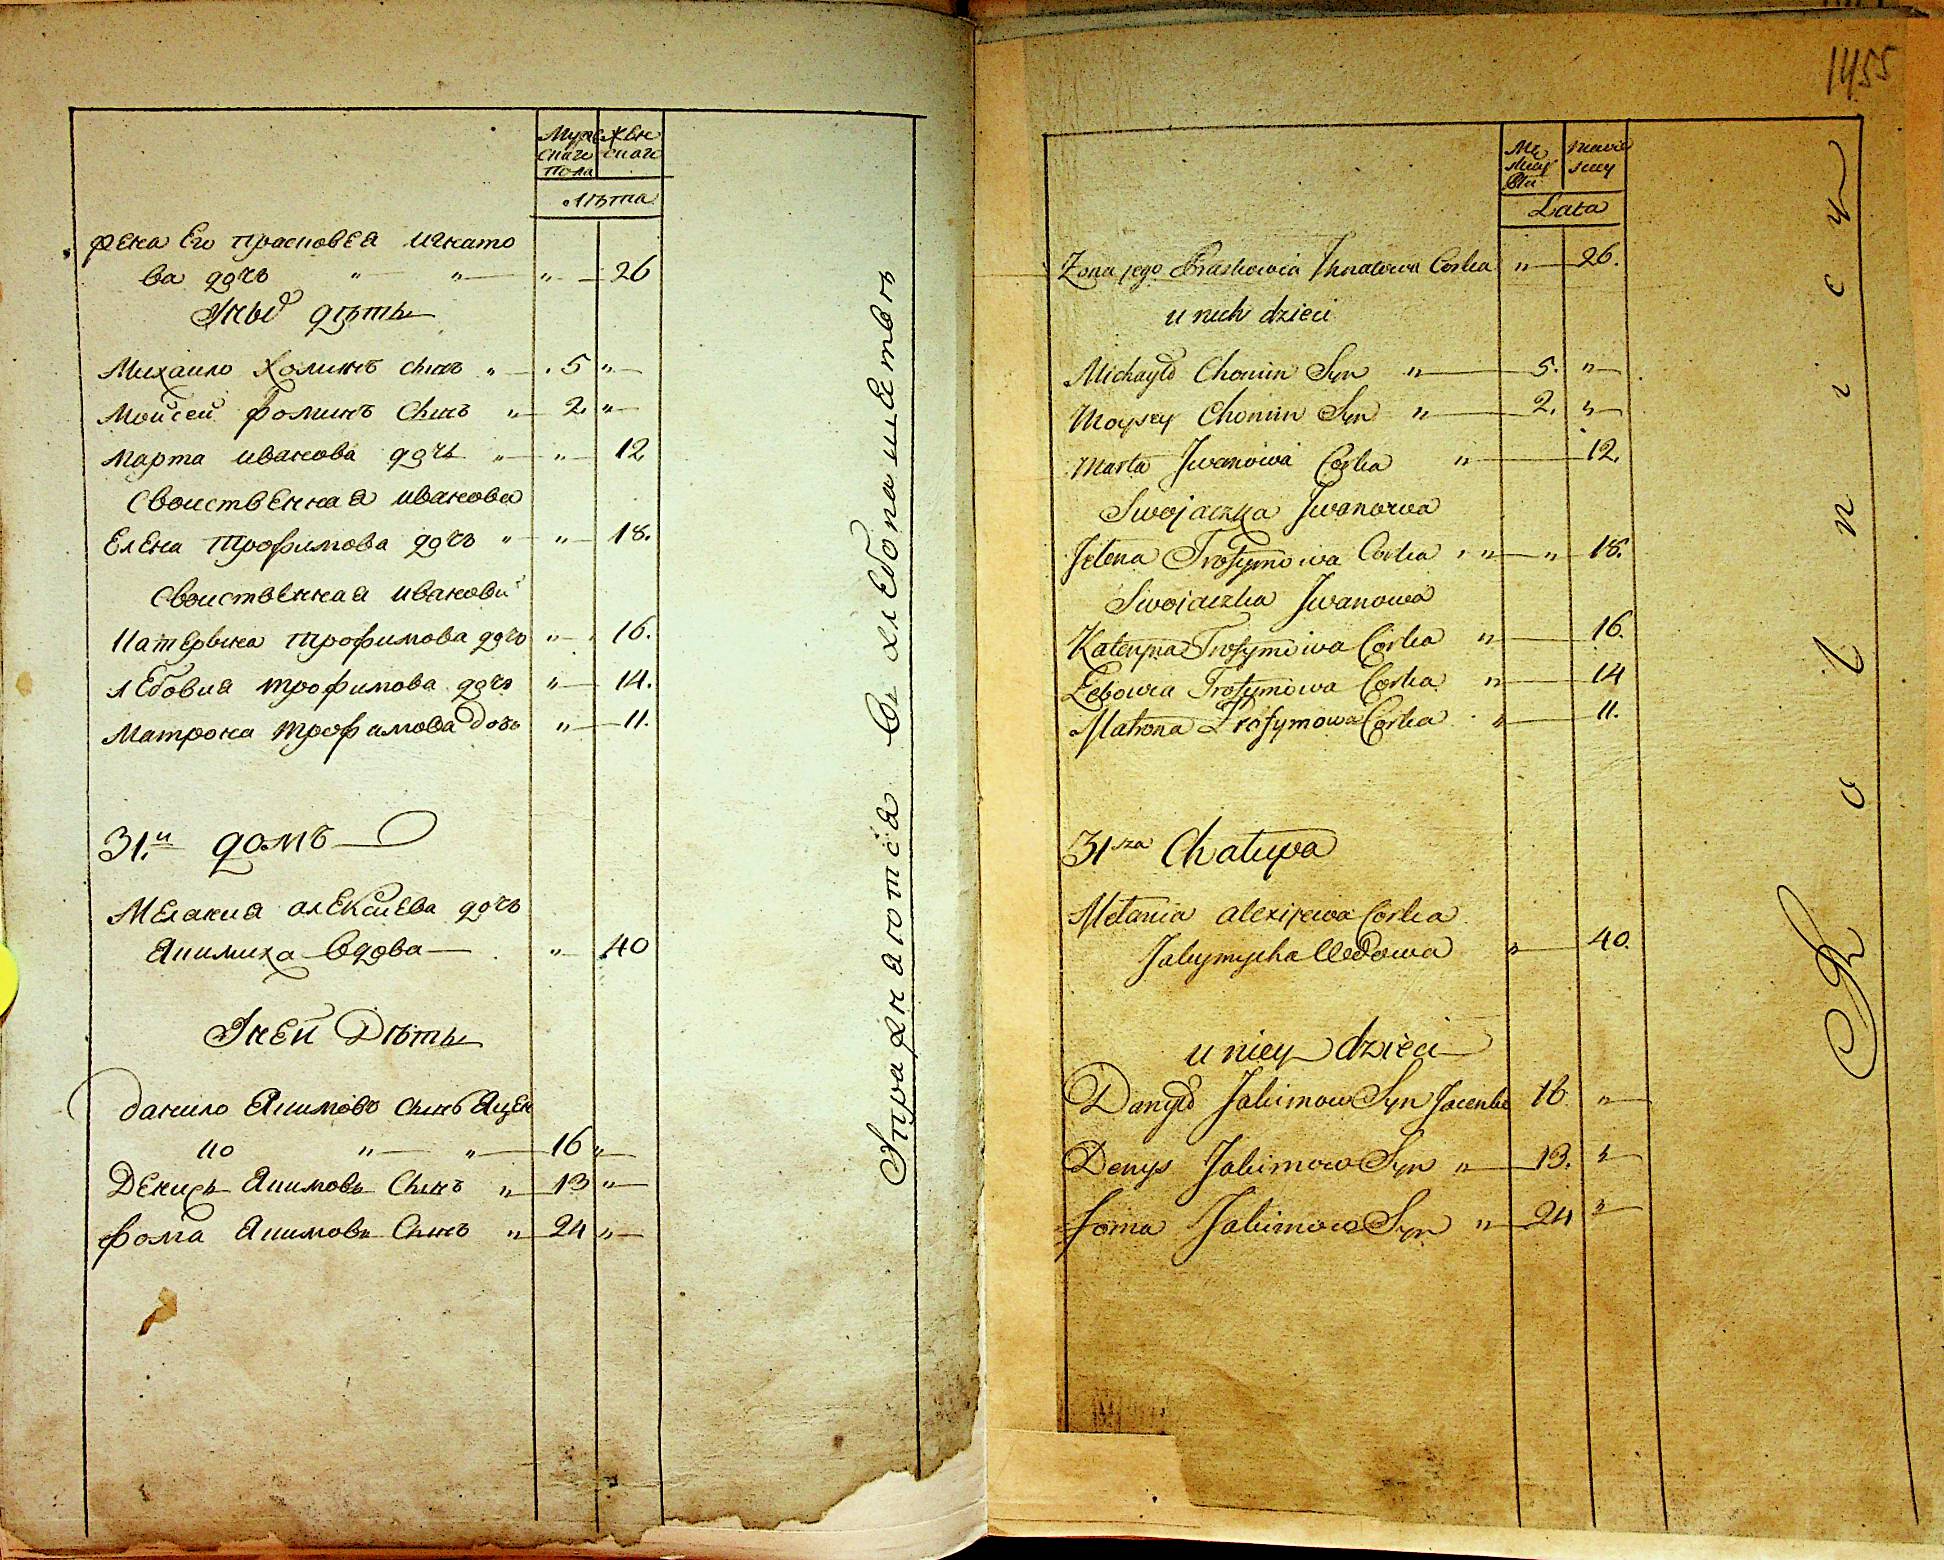 Мужескаго пола
Женскаго
Лѣта
жена Его Прасковея Игнато
ва дочь " " " 26
Уныхъ дѣты
Михаило Хоминъ Сынъ " 5 "
Мойсей Фоминъ Сынъ " 2. "
Марта Иванова дочь " " 12,
Своиственная Иванова
Елена Трофимова дочь " " 18.
Своиственная Иванови
Катерына Трофимова дочь " 16.
Лебовия Трофимова дочь " 14.
Матрона Трофимова дочь " 11.
31.й домъ
Мелания Алексиева дочь
Якимиха Вдова " 40
Уней Дѣты
Данило Якимовъ Сынъ Яцен
ко " " 16 "
Денисъ Якимовъ Сынъ " 13 "
Фома Якимовъ Сынъ " 24 "
Упражняются въ хлебопашествѣ
1455
Męskiey Płci
niewieskiey
Lata
Zona jego Praskowia Ihnatowa Corka " 26.
u nich dzieci
Michayło Chomin Syn " 5. "
Moysey Chomin Syn " 2. "
Marta Jwanowa Corka " 12.
Swojaczka Jwanowa
Jelena Trofymowa Corka " " 18.
Swojaczka Jwanowa
Kateryna Trofymowa Corka " 16.
Lebowia Trofymowa Corka " 14
Matrona Trofymowa Corka " 11.
31sza Chałupa
Melania Alexijewa Corka
Jakymycha Wdowa " 40.
u niey dzieci
Danyło Jakimow Syn Jacenko 16 "
Denys Jakimow Syn " 13. "
Foma Jakimow Syn " 24 "
Rolnicy